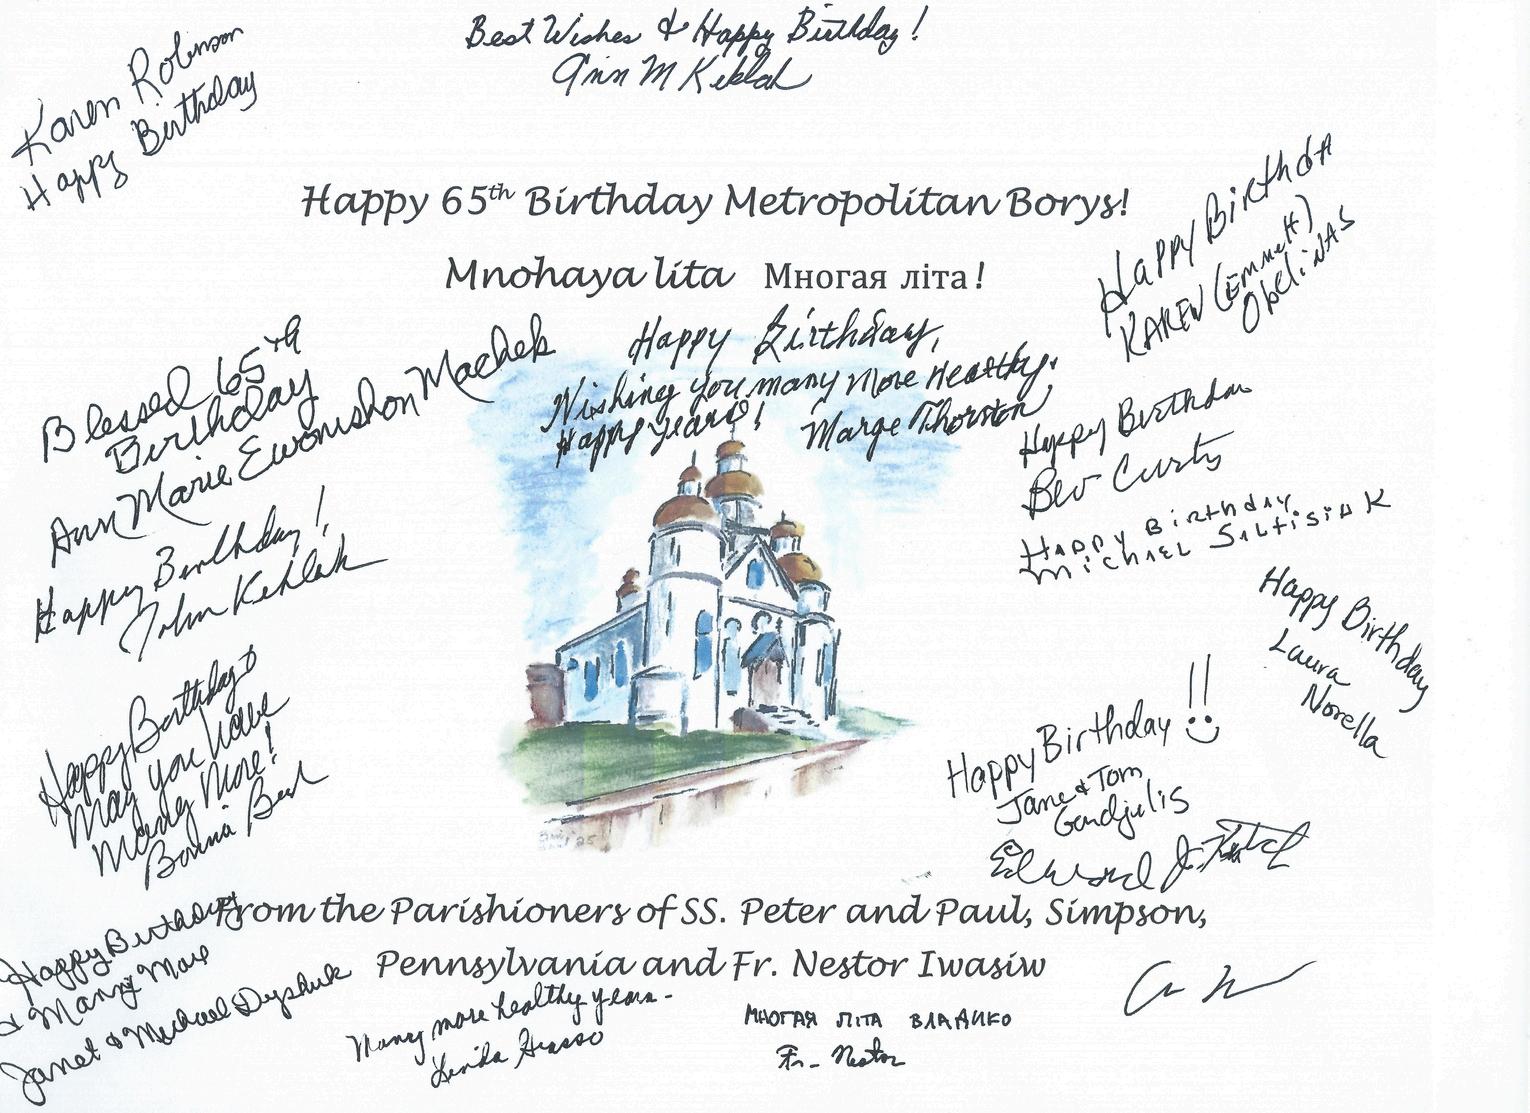 Best Wishes & Happy Birthday!
Ann M Keklak
Karen Robinson
Happy Birthday
Happy 65th Birthday Metropolitan Borys!
Mnohaya lita Многая літа!
Happy Birthda
KAREN (EMMETT)
ObeliNAS
Happy Birthday,
Wishing you many more Healthy.
Happy years!
Marge Thorston
Blessed 65th
Birthday
Ann Marie Machek
Happy Birthday
Bev Curtis
Happy Birthday
MICHAEL
Happy Birthday!
John Keklak
Happy Birthday
Laura
Norella
Happy Birthday
May you have
Many More!
Bonnie
Happy Birthday!!
Jane & Tom
Gendjulis
Edward J.
From the Parishioners of SS. Peter and Paul, Simpson,
Pennsylvania and Fr. Nestor Iwasiw
Happy Birthday
& Many More
Janet & Michael
Many more healthy years-
Linda
МНОГАЯ ЛІТА ВЛАДИКО
Fr. Nestor